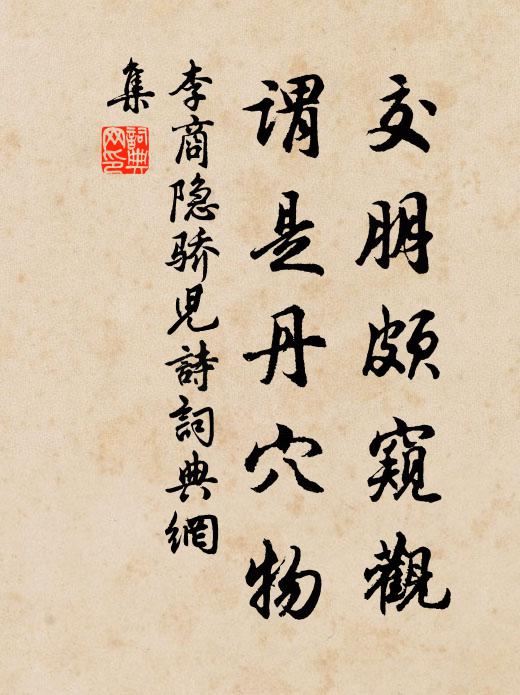 交朋頗窺觀
謂是丹穴物
李商隐骄児詩詞典網
集
詞典网印